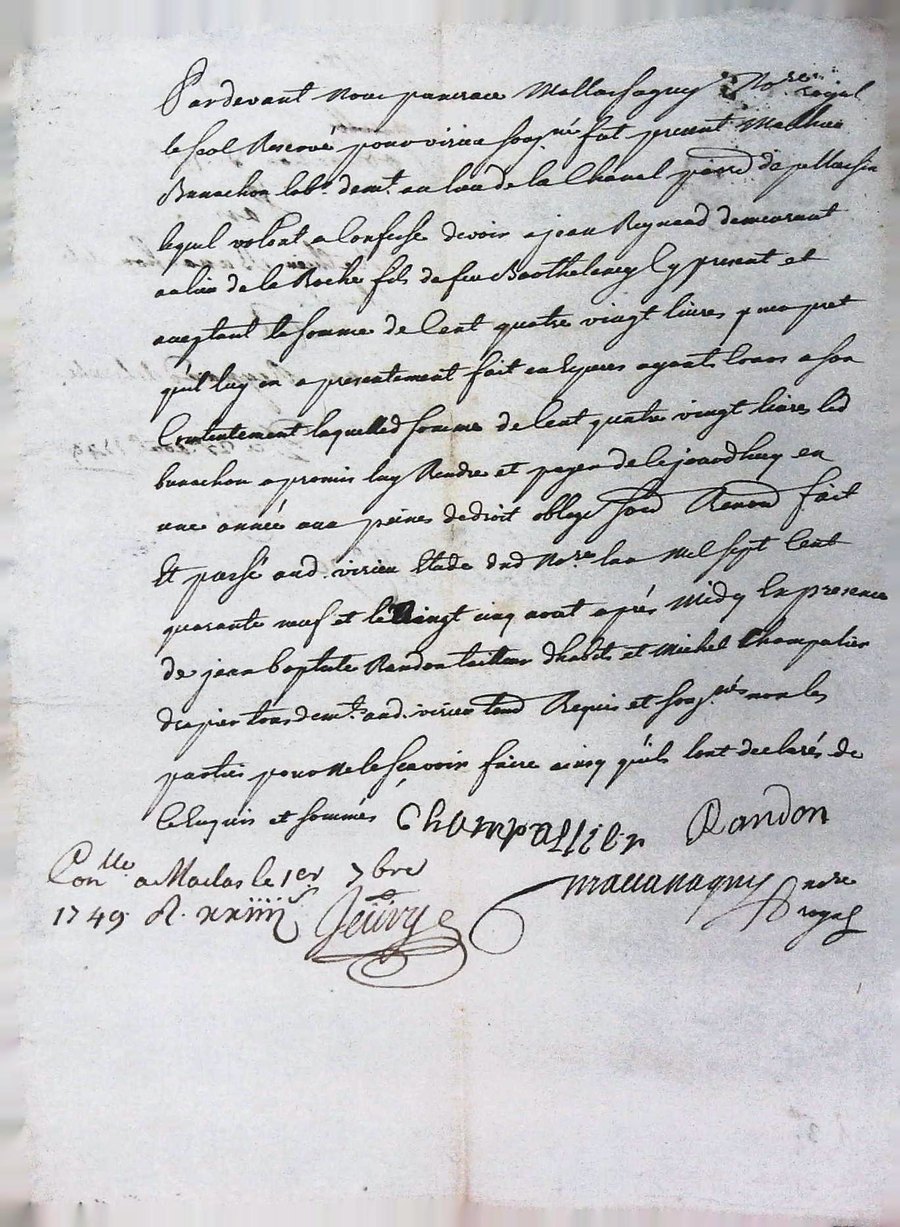 Pardevant nous pancrace Mallassagny No.re royal
le scel Reservé pour virieu soug.né fut present Mathieu
Bunachon lab.r dem.t au lieu de la Chanal parr.e de pellussin
lequel volont a Confessé devoir a jean Reynaud demeurant
au lieu de la Roche fils de feu Barthelemy Cy present et
acceptant la somme de Cent quatre vingt livres pour pret
qu'il luy en a presentement fait en Especes ayant Cours a son
Contentement laquelled somme de Cent quatre vingt livres led
bunachon a promis luy Rendre et payer de cejourdhuy en
une année aux peines de droit oblige soud Renond fait
Et passé aud. virieu Etude dud No.re lan Mil sept Cent
quarante neuf et le vingt cinq aout après Midy En presence
de jean baptiste Randon tailleur dhabits et Michel Champalier
drapier tous dem.ts aud. virieu Requis et soug.nés non les
parties pour ne le sçavoir faire ainsy qu'ils lont declarés de
ce Enquis et sommés Champallier Randon
Con.lle a Maclas le 1er 7bre
1749. R. xxiiii s
nore
royal